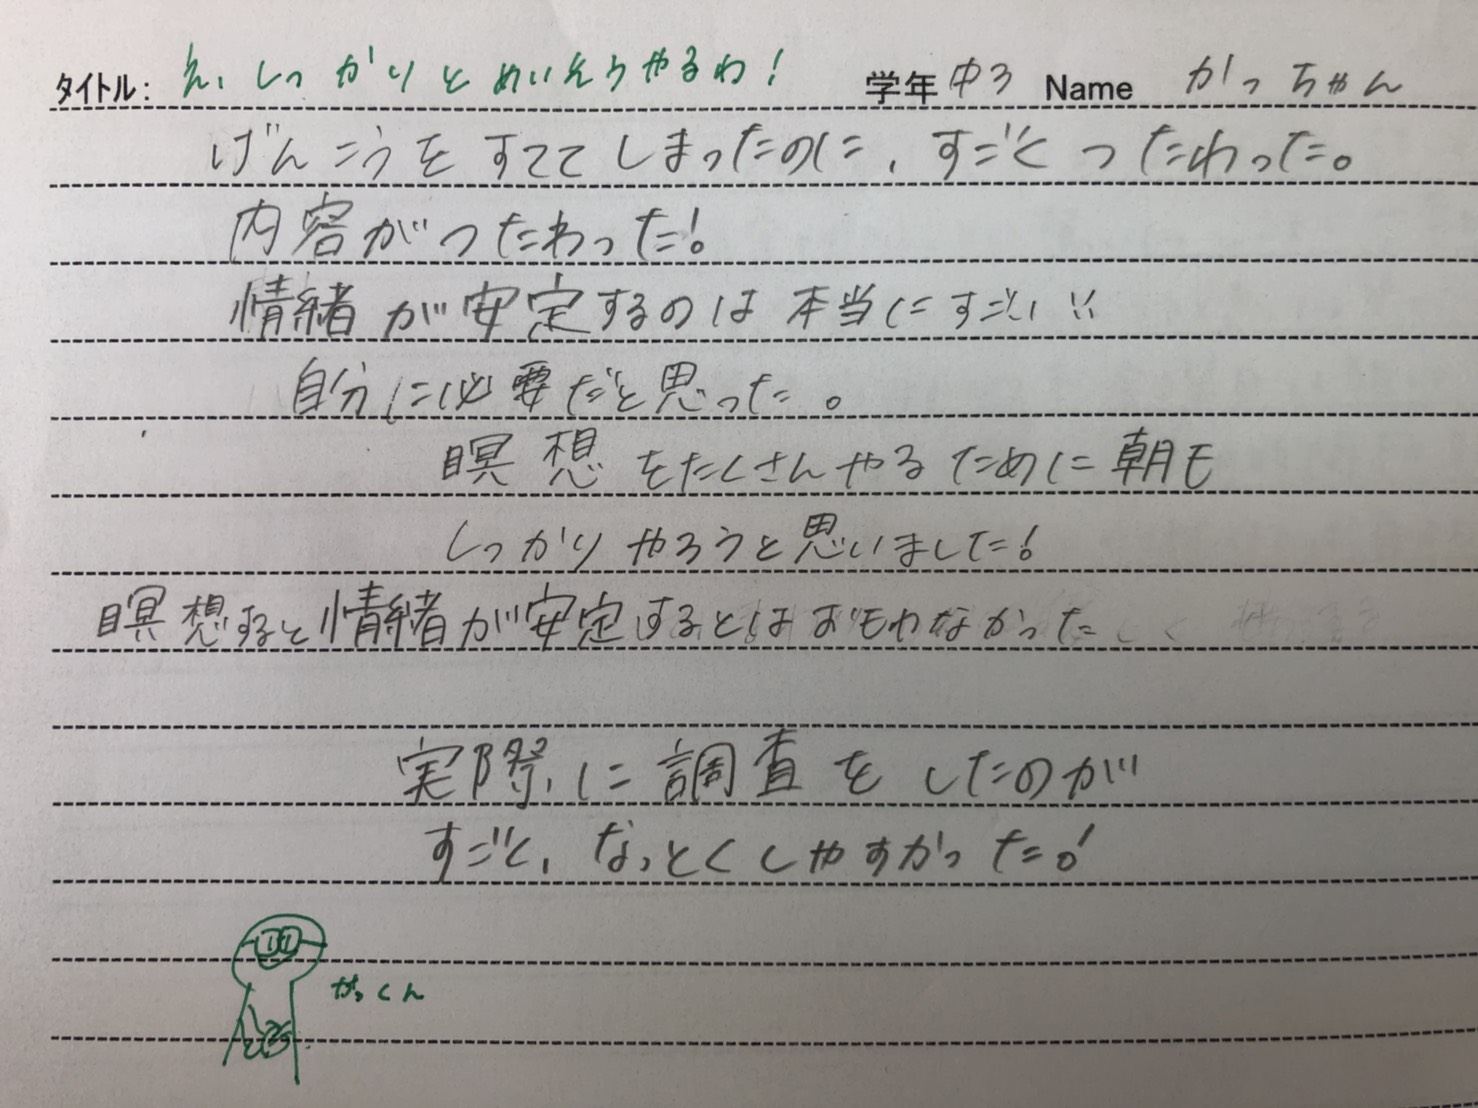 タイトル: え、しっかりとめいそうやるわ! 学年 中3 Name かっちゃん
げんこうをすててしまったのに、すごくつたわった。
内容がつたわった!
情緒が安定するのは本当にすごい!!
自分に必要だと思った。
瞑想をたくさんやるために朝も
しっかりやろうと思いました!
瞑想すると情緒が安定するとはおもわなかった
実際に調査をしたのが
すごく、なっとくしやすかった!
がっくん